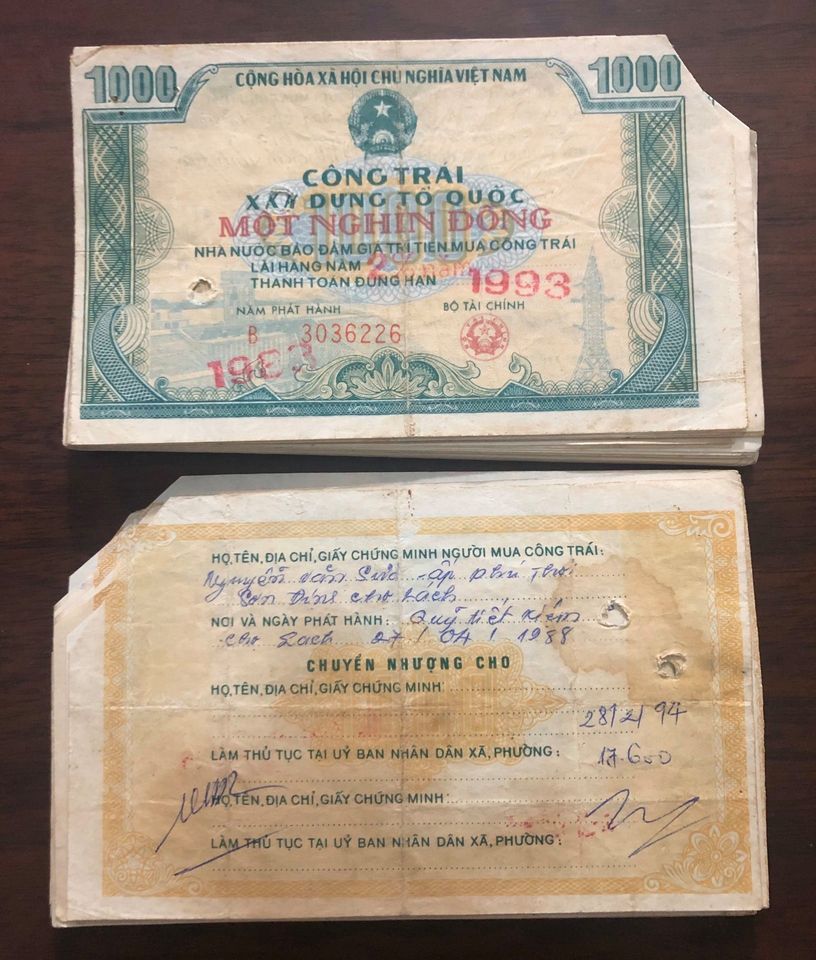 1000 CỘNG HÒA XÃ HỘI CHỦ NGHĨA VIỆT NAM 1000
CÔNG TRÁI
XÂY DỰNG TỔ QUỐC
MỘT NGHÌN ĐỒNG
NHÀ NƯỚC BẢO ĐẢM GIÁ TRỊ TIỀN MUA CÔNG TRÁI
LÃI HÀNG NĂM 2% năm
THANH TOÁN ĐÚNG HẠN 1993
NĂM PHÁT HÀNH BỘ TÀI CHÍNH
B 3036226
1983
HỌ, TÊN, ĐỊA CHỈ, GIẤY CHỨNG MINH NGƯỜI MUA CÔNG TRÁI:
Nguyễn Văn ấp Phú
Sơn Định chợ Lách
NƠI VÀ NGÀY PHÁT HÀNH: Quỹ tiết kiệm
chợ Lach 27 / 04 / 1988
CHUYỂN NHƯỢNG CHO
HỌ, TÊN, ĐỊA CHỈ, GIẤY CHỨNG MINH:
28/2/94
LÀM THỦ TỤC TẠI UỶ BAN NHÂN DÂN XÃ, PHƯỜNG: 17.600
HỌ, TÊN, ĐỊA CHỈ, GIẤY CHỨNG MINH:
LÀM THỦ TỤC TẠI UỶ BAN NHÂN DÂN XÃ, PHƯỜNG: